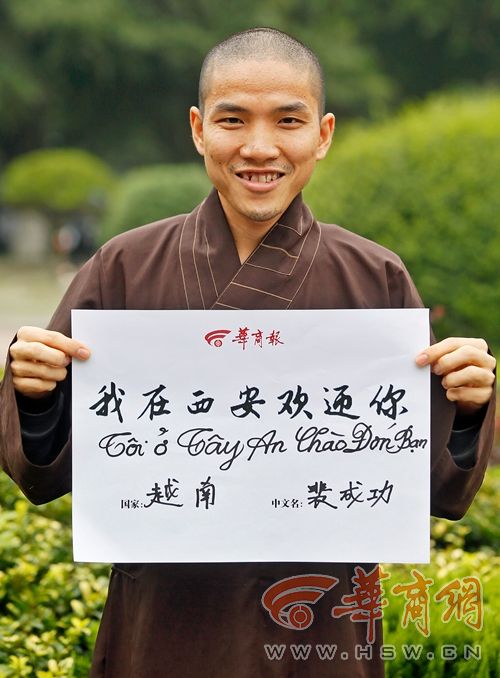 華商報
我在西安欢迎你
Tôi ở Tây An Chào Đón Bạn
国家:越南 中文名:裴成功
華商網
WWW.HSW.CN